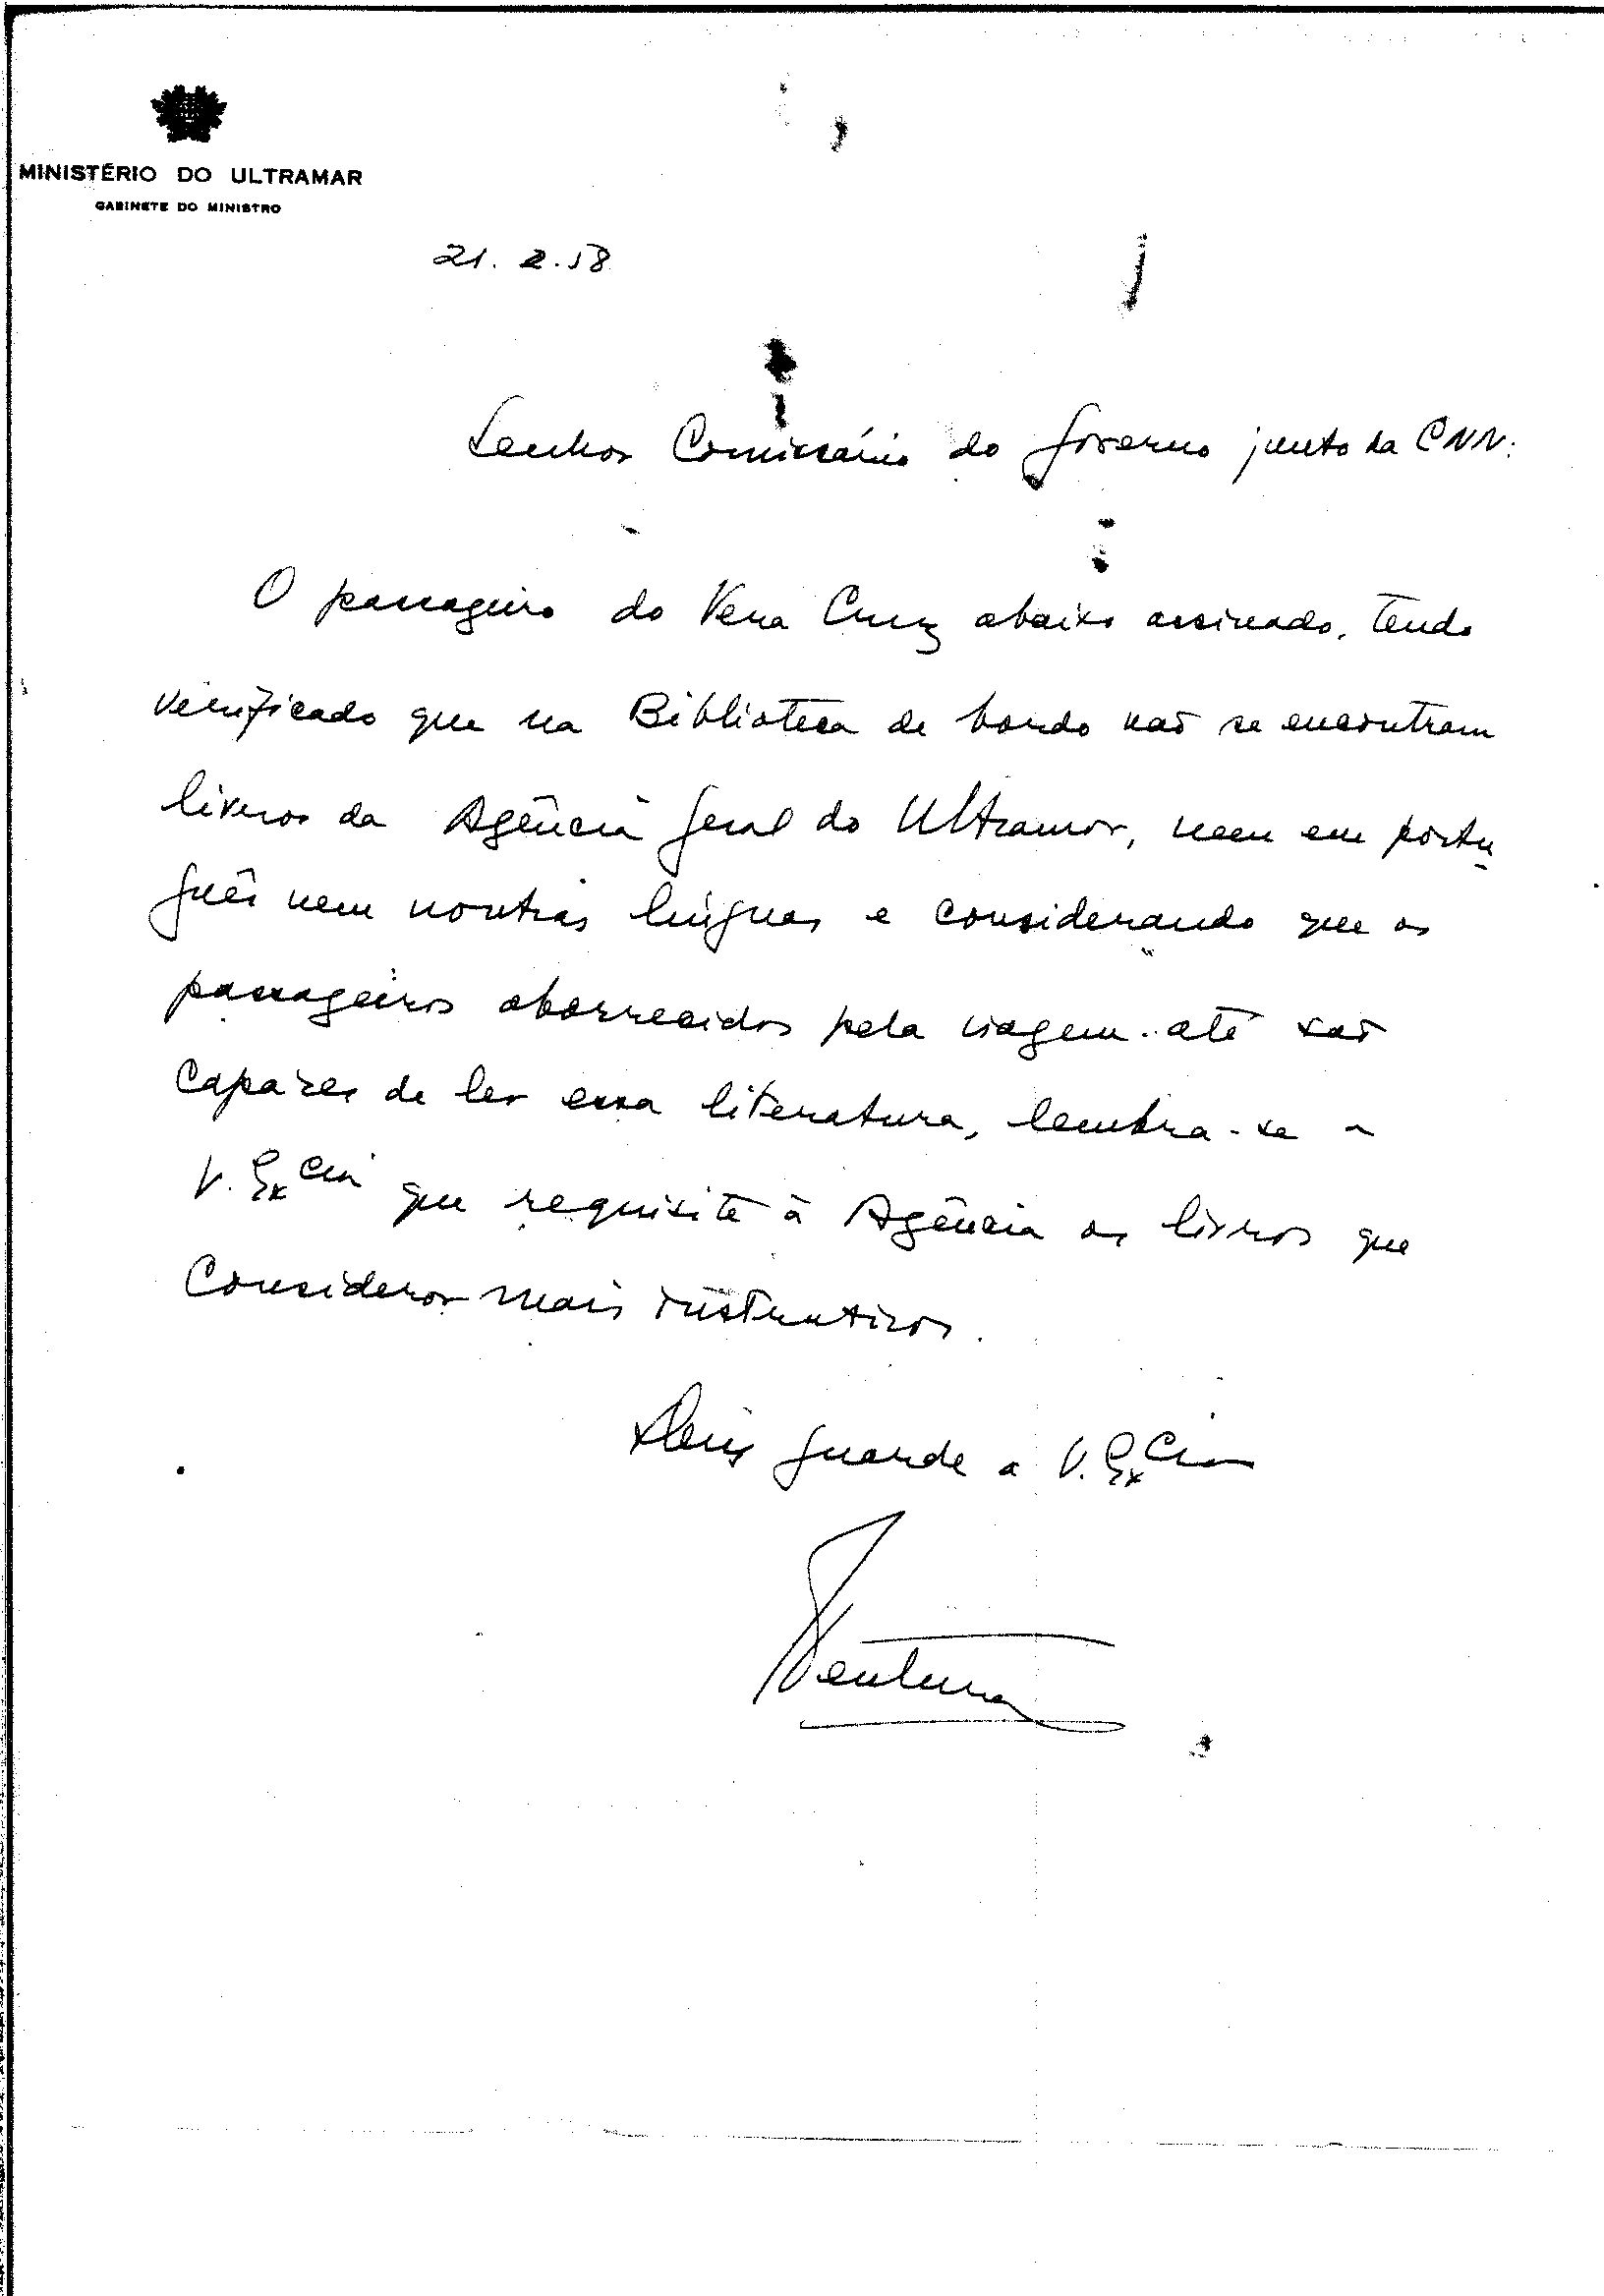 MINISTÉRIO DO ULTRAMAR
GABINETE DO MINISTRO
21. 2. 58
Senhor Comissário do Governo junto da CNN:
O passageiro do Vera Cruz abaixo assinado, tendo
verificado que na Biblioteca de bordo não se encontram
livros da Agência Geral do Ultramar, nem em portu
guês nem noutras línguas e considerando que os
passageiros aborrecidos pela viagem até são
capazes de ler essa literatura, lembra-se a
V. Excia que requisite à Agência os livros que
considerar mais instrutivos.
Deus guarde a V. Excia
Ventura